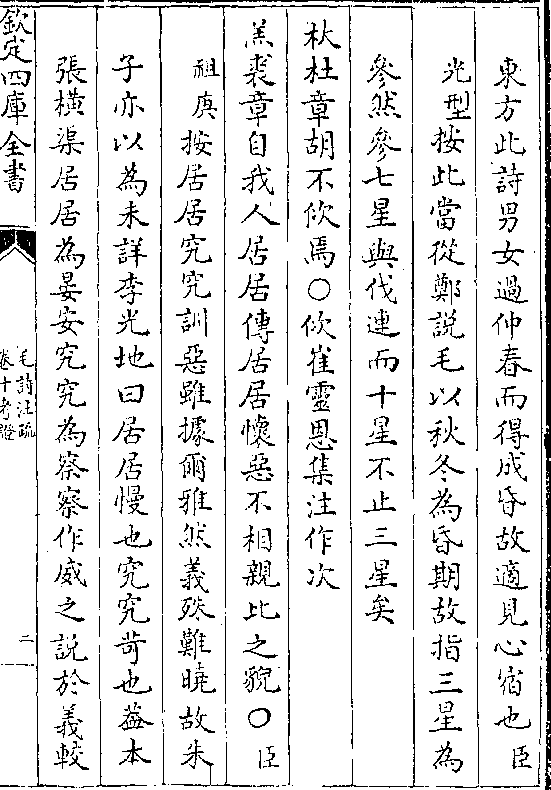 東方此詩男女過仲春而得成昏故適見心宿也臣
光型按此當從鄭說毛以秋冬為昏期故指三星為
參然參七星與伐連而十星不止三星矣
杕杜章胡不佽焉○佽崔靈恩集注作次
羔裘章自我人居居傳居居懷惡不相親比之貌○臣
祖庚按居居究究訓惡雖據爾雅然義殊難曉故朱
子亦以為未詳李光地曰居居慢也究究苛也葢本
張橫渠居居為晏安究究為蔡察作威之說於義較
欽定四庫全書
毛詩注疏
卷十考證
二